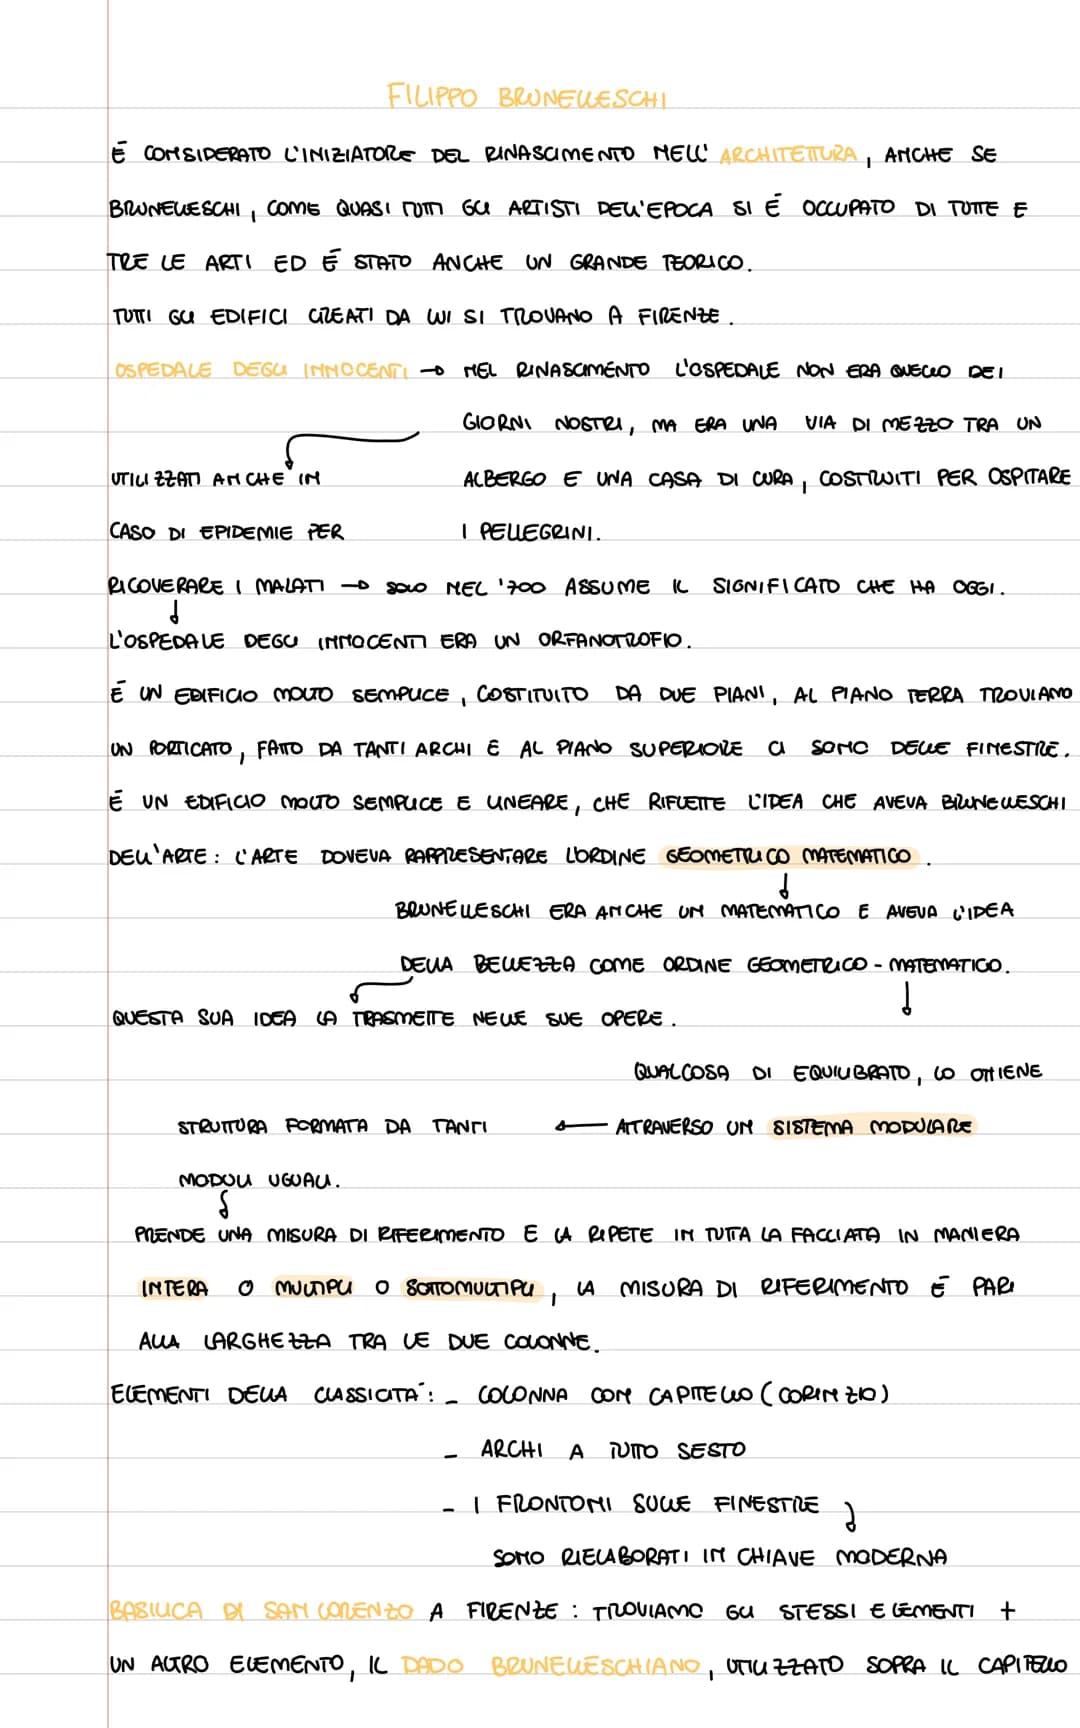 FILIPPO BRUNELLESCHI
É CONSIDERATO L'INIZIATORE DEL RINASCIMENTO NELL' ARCHITETTURA, ANCHE SE
BRUNELLESCHI, COME QUASI TUTTI GLI ARTISTI DELL'EPOCA SI É OCCUPATO DI TUTTE E
TRE LE ARTI ED É STATO ANCHE UN GRANDE TEORICO.
TUTTI GLI EDIFICI CREATI DA LUI SI TROVANO A FIRENZE.
OSPEDALE DEGLI INNOCENTI → NEL RINASCIMENTO L'OSPEDALE NON ERA QUELLO DEI
GIORNI NOSTRI, MA ERA UNA VIA DI MEZZO TRA UN
UTILIZZATI ANCHE IN ALBERGO E UNA CASA DI CURA, COSTRUITI PER OSPITARE
CASO DI EPIDEMIE PER I PELLEGRINI.
RICOVERARE I MALATI → SOLO NEL '700 ASSUME IL SIGNIFICATO CHE HA OGGI.
↓
L'OSPEDALE DEGLI INNOCENTI ERA UN ORFANOTROFIO.
É UN EDIFICIO MOLTO SEMPLICE, COSTITUITO DA DUE PIANI, AL PIANO TERRA TROVIAMO
UN PORTICATO, FATTO DA TANTI ARCHI E AL PIANO SUPERIORE CI SONO DELLE FINESTRE.
É UN EDIFICIO MOLTO SEMPLICE E LINEARE, CHE RIFLETTE L'IDEA CHE AVEVA BRUNELLESCHI
DELL'ARTE: L'ARTE DOVEVA RAPPRESENTARE L'ORDINE GEOMETRICO MATEMATICO.
↓
BRUNELLESCHI ERA ANCHE UN MATEMATICO E AVEVA L'IDEA
DELLA BELLEZZA COME ORDINE GEOMETRICO - MATEMATICO.
QUESTA SUA IDEA LA TRASMETTE NELLE SUE OPERE. ↓
QUALCOSA DI EQUILIBRATO, LO OTTIENE
STRUTTURA FORMATA DA TANTI ← ATTRAVERSO UN SISTEMA MODULARE
MODULI UGUALI.
PRENDE UNA MISURA DI RIFERIMENTO E LA RIPETE IN TUTTA LA FACCIATA IN MANIERA
INTERA O MULTIPLI O SOTTOMULTIPLI, LA MISURA DI RIFERIMENTO É PARI
ALLA LARGHEZZA TRA LE DUE COLONNE.
ELEMENTI DELLA CLASSICITÁ: - COLONNA CON CAPITELLO (CORINZIO)
- ARCHI A TUTTO SESTO
- I FRONTONI SULLE FINESTRE
SONO RIELABORATI IN CHIAVE MODERNA
BASILICA DI SAN LORENZO A FIRENZE: TROVIAMO GLI STESSI ELEMENTI +
UN ALTRO ELEMENTO, IL DADO BRUNELLESCHIANO, UTILIZZATO SOPRA IL CAPITELLO